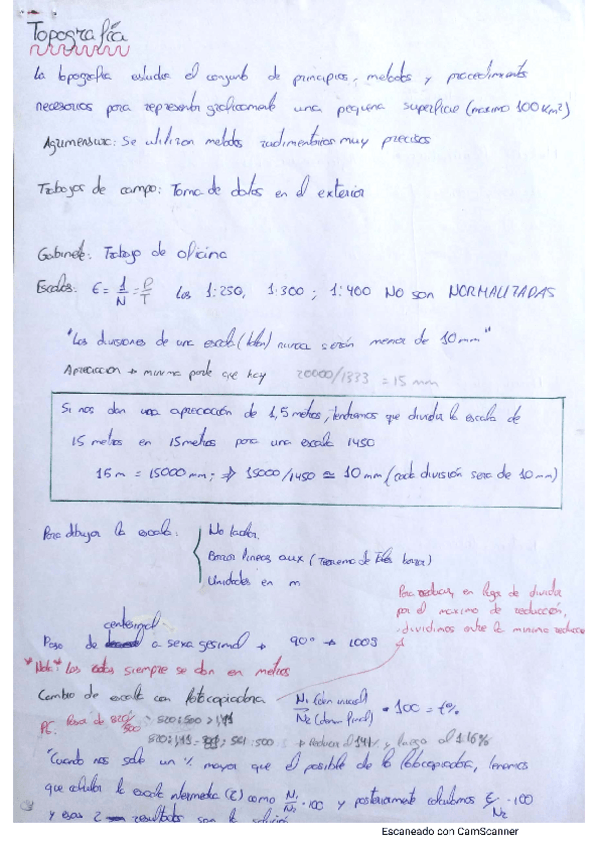 Topografía
La topografía estudia el conjunto de principios, metodos y procedimientos
necesarios para representar graficamente una pequeña superficie (maximo 100 Km²)
Agrimensura: Se utilizan metodos rudimentarios muy precisos
Trabajos de campo: Toma de datos en el exterior
Gabinete: Trabajo de oficina
Escalas: E = 1/N = P/T Las 1:250, 1:300; 1:400 NO son NORMALIZADAS
"Las divisiones de una escala (talon) nunca serán menor de 10mm"
Apreciacion → minima parte que hay 20000/1333 = 15 mm
Si nos dan una apreciación de 1,5 metros, tendremos que dividir la escala de
15 metros en 15 metros para una escala 1450
15m = 15000mm; ⇒ 15000/1450 ≃ 10 mm (cada división sera de 10mm)
Para dibujar la escala:
No tachar
Borrar lineas aux (Teorema de Tales borrar)
Unidades en m
Para reducir, en lugar de dividir
por el maximo de reducción,
dividimos entre la minima reducción
centesimal
Paso de a sexagesimal → 90° → 100g
*Nota* Las cotas siempre se dan en metros
Cambio de escala con fotocopiadora N₁ (den inicial) / N₂ (denom final) · 100 = t%
PE: Pasa de 820/500
→ Reducir al y luego al
"Cuando nos sale un % mayor que el posible de la fotocopiadora, tenemos
que calcular la escala intermedia (E) como · 100 y posteriormente calculamos E/N₂ · 100
y esos 2 resultados son la solución
Escaneado con CamScanner